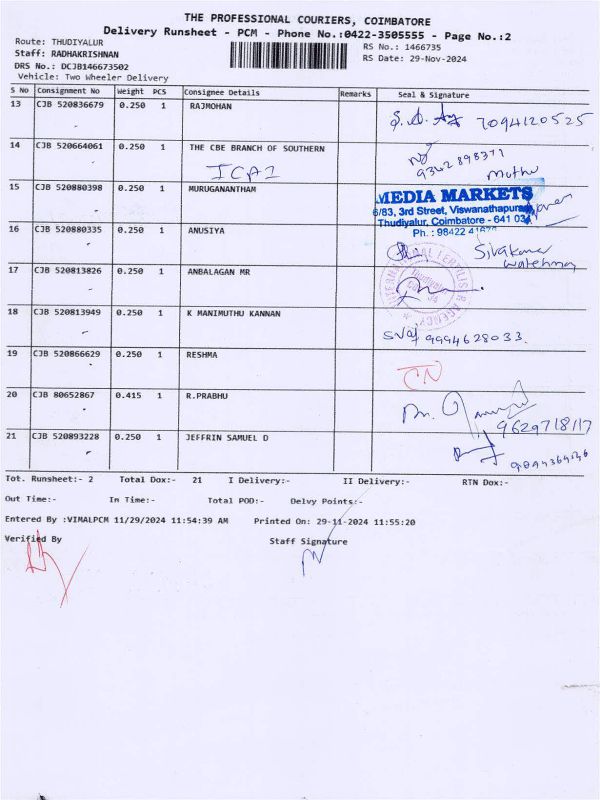 THE PROFESSIONAL COURIERS, COIMBATORE
Delivery Runsheet - PCM - Phone No.:0422-3505555 - Page No.:2
Route: THUDIYALUR
RS No.: 1466735
Staff: RADHAKRISHNAN
RS Date: 29-Nov-2024
DRS No.: DCJB146673502
Vehicle: Two Wheeler Delivery
S No Consignment No Weight PCS Consignee Details Remarks Seal & Signature
13 CJB 520836679 0.250 1 RAJMOHAN 7094120525
14 CJB 520664061 0.250 1 THE CBE BRANCH OF SOUTHERN
ICAI
9342898371
Muthu
15 CJB 520880398 0.250 1 MURUGANANTHAM
MEDIA MARKETS
6/83, 3rd Street, Viswanathapuram
Thudiyalur, Coimbatore - 641 034
Ph. : 98422
16 CJB 520880335 0.250 1 ANUSIYA
Sivakumar
watchman
17 CJB 520813826 0.250 1 ANBALAGAN MR
Thudiyalur
34
AGENCY
18 CJB 520813949 0.250 1 K MANIMUTHU KANNAN
9994628033
19 CJB 520866629 0.250 1 RESHMA
CN
20 CJB 80652867 0.415 1 R.PRABHU
9629718117
21 CJB 520893228 0.250 1 JEFFRIN SAMUEL D
Tot. Runsheet:- 2 Total Dox:- 21 I Delivery:- II Delivery:- RTN Dox:-
Out Time:- In Time:- Total POD:- Delvy Points:-
Entered By :VIMALPCM 11/29/2024 11:54:39 AM Printed On: 29-11-2024 11:55:20
Verified By
Staff Signature